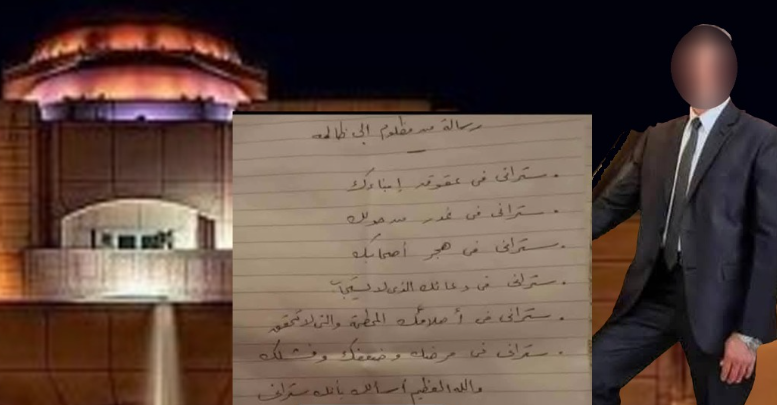 رسالة من مظلوم إلى ظالمه
. ستراني في عقوق أبناءك
. ستراني في غدر من حولك
. ستراني في هجر أصحابك
. ستراني في دعائك الذي لا يستجاب
. ستراني في أحلامك المحطمة والتي لا تتحقق
. ستراني في مرضك وضعفك وفشلك
والله العظيم أسألك بأنك ستراني